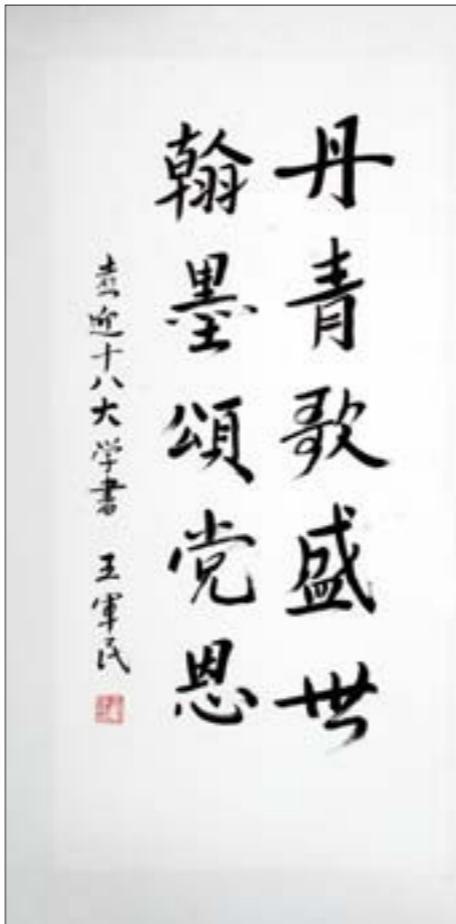 丹青歌盛世
翰墨頌党恩
喜迎十八大学書 王军民